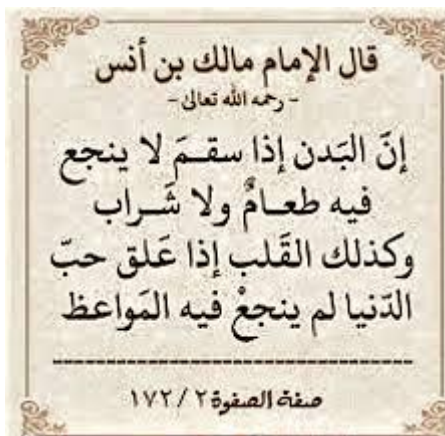 قال الإمام مالك بن أنس
- رحمه الله تعالى -
إنَ البَدن إذا سقـمَ لا ينجع
فيه طعـامٌ ولا شَـراب
وكذلك القَلب إذا عَلق حبّ
الدّنيا لم ينجعْ فيه المَواعظ
صفة الصفوة ٢ / ١٧٢